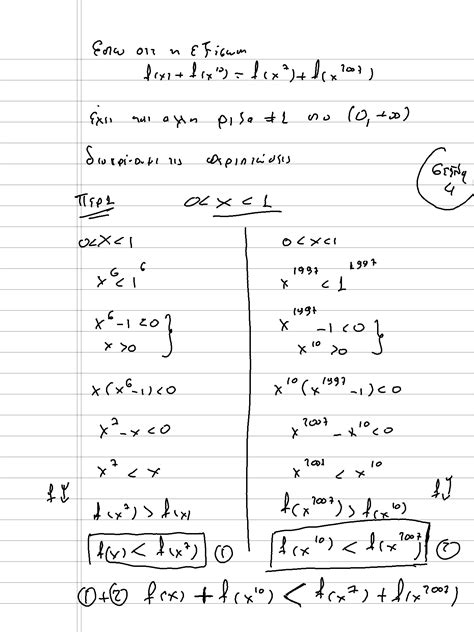 Εστω οτι η εξισωση
f(x) + f(x¹⁰) = f(x⁷) + f(x²⁰⁰⁷)
Εχει και αλλη ριζα ≠1 στο (0, +∞)
διακρινουμε τις περιπτωσεις
σελιδα 4
Περ1 0 < x < 1
0 < x < 1
x⁶ < 1⁶
x⁶ - 1 < 0
x > 0
x(x⁶ - 1) < 0
x⁷ - x < 0
x⁷ < x
f↓
f(x⁷) > f(x)
f(x) < f(x⁷) ①
0 < x < 1
x¹⁹⁹⁷ < 1¹⁹⁹⁷
x¹⁹⁹⁷ - 1 < 0
x¹⁰ > 0
x¹⁰(x¹⁹⁹⁷ - 1) < 0
x²⁰⁰⁷ - x¹⁰ < 0
x²⁰⁰⁷ < x¹⁰
f↓
f(x²⁰⁰⁷) > f(x¹⁰)
f(x¹⁰) < f(x²⁰⁰⁷) ②
①+② f(x) + f(x¹⁰) < f(x⁷) + f(x²⁰⁰⁷)